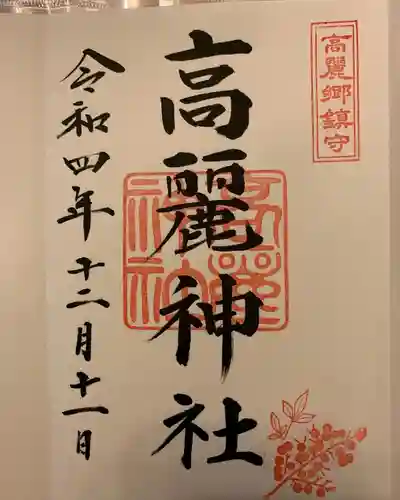 高麗郷鎮守
高麗神社
高麗神社
令和四年十二月十一日